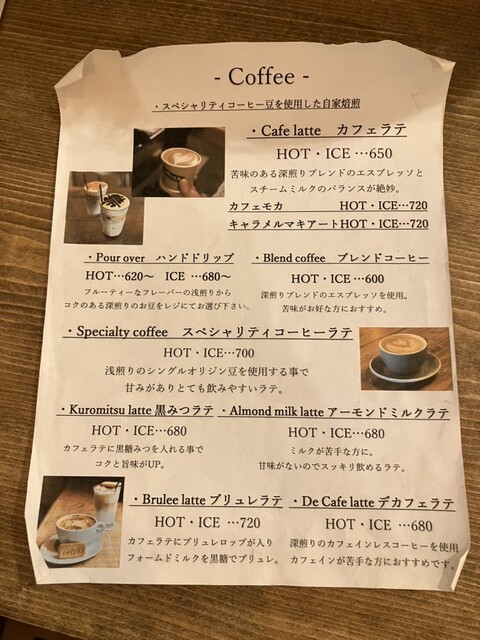 - Coffee -
・スペシャリティコーヒー豆を使用した自家焙煎
・Cafe latte　カフェラテ
HOT・ICE …650
苦味のある深煎りブレンドのエスプレッソと
スチームミルクのバランスが絶妙。
カフェモカ　HOT・ICE…720
キャラメルマキアートHOT・ICE…720
・Pour over　ハンドドリップ
HOT…620〜　ICE …680〜
フルーティーなフレーバーの浅煎りから
コクのある深煎りのお豆をレジにてお選び下さい。
・Blend coffee　ブレンドコーヒー
HOT・ICE …600
深煎りブレンドのエスプレッソを使用。
苦味がお好な方におすすめ。
・Specialty coffee　スペシャリティコーヒーラテ
HOT・ICE…700
浅煎りのシングルオリジン豆を使用する事で
甘みがありとても飲みやすいラテ。
・Kuromitsu latte 黒みつラテ
HOT・ICE…680
カフェラテに黒糖みつを入れる事で
コクと旨味がUP。
・Almond milk latte アーモンドミルクラテ
HOT・ICE…680
ミルクが苦手な方に。
甘味がないのでスッキリ飲めるラテ。
・Brulee latte ブリュレラテ
HOT・ICE …720
カフェラテにブリュレロップが入り
フォームドミルクを黒糖でブリュレ。
・De Cafe latte デカフェラテ
HOT・ICE …680
深煎りのカフェインレスコーヒーを使用
カフェインが苦手な方におすすめです。